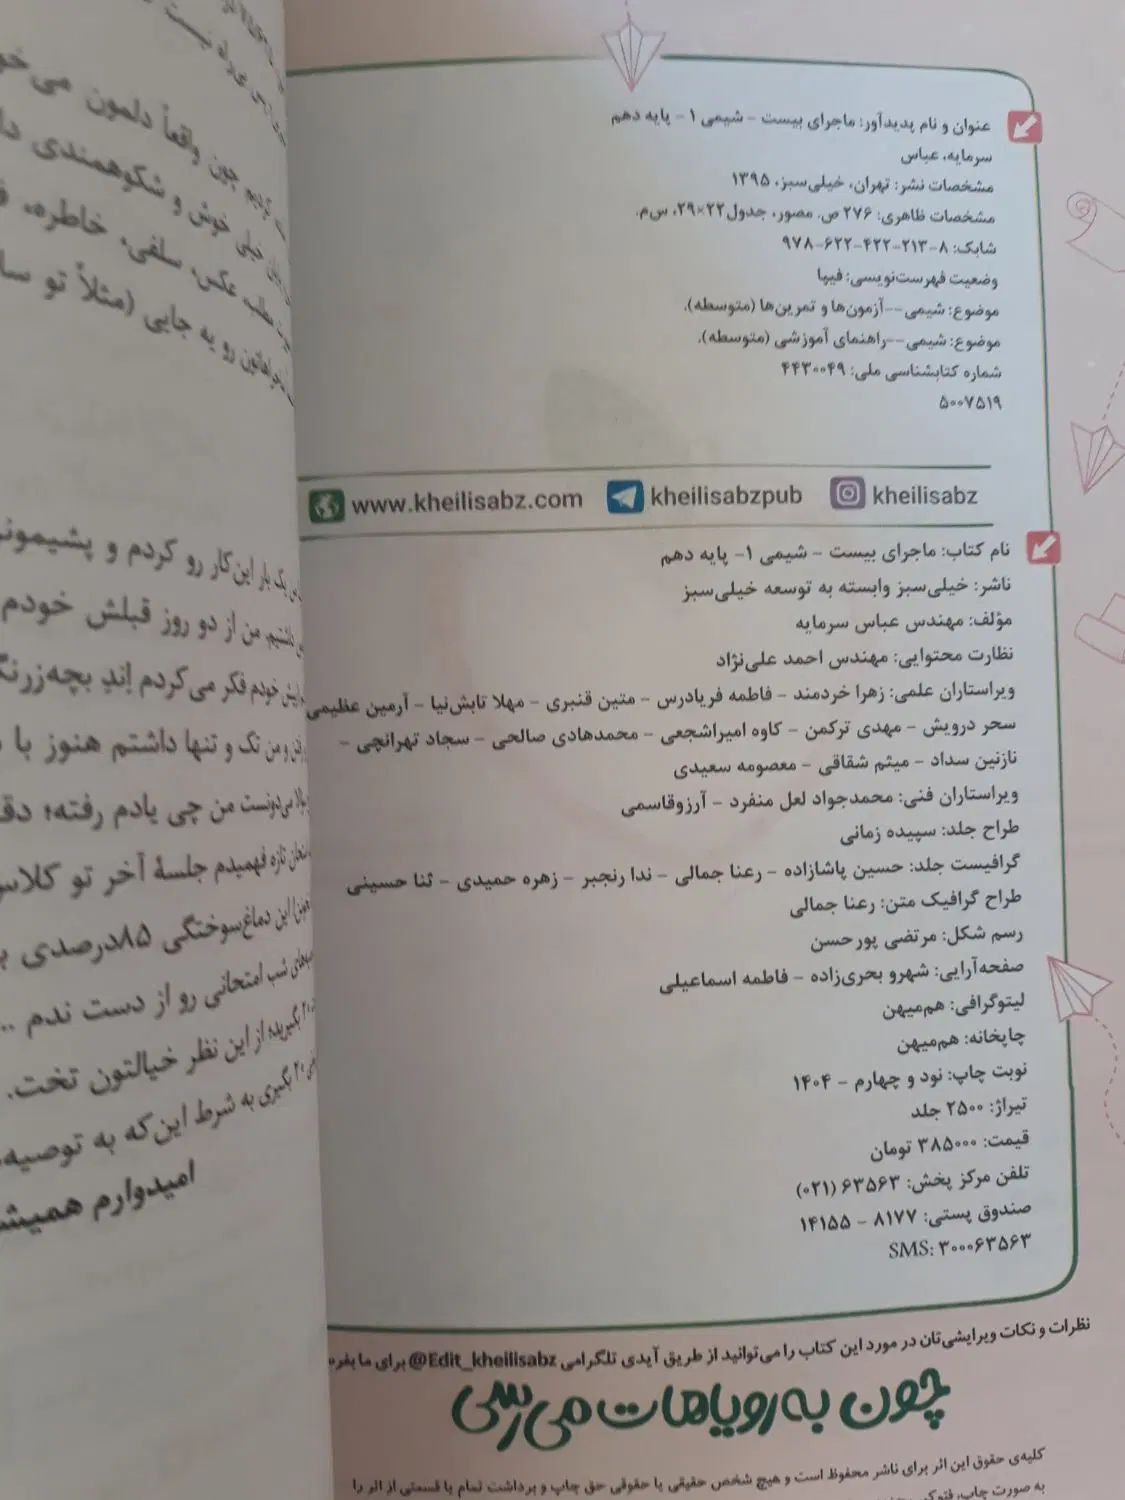 عنوان و نام پدیدآور: ماجرای بیست - شیمی ۱ - پایه دهم
سرمایه، عباس
مشخصات نشر: تهران، خیلی‌سبز، ۱۳۹۵
مشخصات ظاهری: ۲۷۶ ص. مصور، جدول ۲۲×۲۹، س‌م.
شابک: ۸-۲۱۳-۴۲۲-۶۲۲-۹۷۸
وضعیت فهرست‌نویسی: فیپا
موضوع: شیمی--آزمون‌ها و تمرین‌ها (متوسطه).
موضوع: شیمی--راهنمای آموزشی (متوسطه).
شماره کتابشناسی ملی: ۴۴۳۰۰۴۹
۵۰۰۷۵۱۹
www.kheilisabz.com kheilisabzpub kheilisabz
نام کتاب: ماجرای بیست - شیمی ۱- پایه دهم
ناشر: خیلی‌سبز وابسته به توسعه خیلی‌سبز
مؤلف: مهندس عباس سرمایه
نظارت محتوایی: مهندس احمد علی‌نژاد
ویراستاران علمی: زهرا خردمند - فاطمه فریادرس - متین قنبری - مهلا تابش‌نیا - آرمین عظیمی
سحر درویش - مهدی ترکمن - کاوه امیراشجعی - محمدهادی صالحی - سجاد تهرانچی -
نازنین سداد - میثم شقاقی - معصومه سعیدی
ویراستاران فنی: محمدجواد لعل منفرد - آرزوقاسمی
طراح جلد: سپیده زمانی
گرافیست جلد: حسین پاشازاده - رعنا جمالی - ندا رنجبر - زهره حمیدی - ثنا حسینی
طراح گرافیک متن: رعنا جمالی
رسم شکل: مرتضی پورحسن
صفحه‌آرایی: شهرو بحری‌زاده - فاطمه اسماعیلی
لیتوگرافی: هم‌میهن
چاپخانه: هم‌میهن
نوبت چاپ: نود و چهارم - ۱۴۰۴
تیراژ: ۲۵۰۰ جلد
قیمت: ۳۸۵۰۰۰ تومان
تلفن مرکز پخش: ۶۳۵۶۳ (۰۲۱)
صندوق پستی: ۸۱۷۷ - ۱۴۱۵۵
SMS: ۳۰۰۰۶۳۵۶۳
نظرات و نکات ویرایشی‌تان در مورد این کتاب را می‌توانید از طریق آیدی تلگرامی @Edit_kheilisabz برای ما بفر
چون به رویاهات می‌رسی
کلیه‌ی حقوق این اثر برای ناشر محفوظ است و هیچ شخص حقیقی یا حقوقی حق چاپ و برداشت تمام یا قسمتی از اثر را
به صورت چاپ، فتوکپی
کردیم چون واقعاً دلمون می‌خو
خیلی خوش و شکوهمندی دا
مطلب، عکس، سلفی، خاطره،
رو یه جایی (مثلاً تو سا
یک بار این‌کار رو کردم و پشیمونر
داشتیم. من از دو روز قبلش خودم
خودم فکر می‌کردم اِندِ بچه‌زرنگ
و من تک و تنها داشتم هنوز با
می‌دونست من چی یادم رفته؛ دق
تازه فهمیدم جلسهٔ آخر تو کلاس
این دماغ‌سوختگی ۸۵درصدی
شب امتحانی رو از دست ندم ..
بگیرید؛ از این نظر خیالتون تخت.
۲۰ بگیری به شرط این‌که به توصیه
امیدوارم همیشه